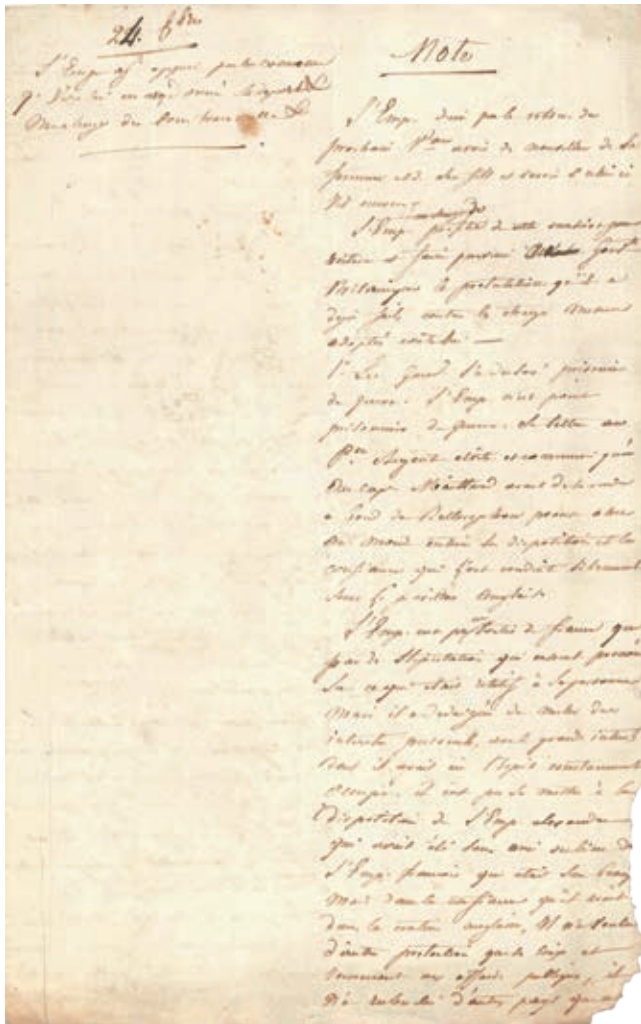 24. 8bre
L'Emp.
Note
L'Emp. desire par le retour du
prochain avoir de nouvelles de sa
femme et de son fils et savoir si celui ci
vit encore.
L'Emp. profite de cette occasion pour
réitérer et faire parvenir
Britannique les protestations qu'il a
déjà fait contre les étranges mesures
adoptés contre lui
1° Le Gouvt l'a déclaré prisonnier
de guerre. L'Emp. n'est point
prisonnier de guerre. Sa lettre au
Pce Régent écrite et communiqué
au cape Maitland avant de se rendre
à bord du Bellerophon prouve assez
au monde entier les dispositions et la
confiance qui l'ont conduit librement
sous le pavillon anglais.
L'Emp. eut pu ne sortir de france que
par des stipulations qui eussent prononcé
sur ce qui était relatif à sa personne
mais il a dédaigné de mêler des
intérêts personnels, aux grands intérêts
dont il avait eu l'esprit constamment
occupé. il eut pu se mettre à la
disposition de l'Emp. alexandre
qui avait été son ami ou bien de
l'Emp. françois qui était son beau
mais dans la confiance qu'il avait
dans la nation anglaise, il n'a voulu
d'autre protection que les loix et
renonçant aux affaires publiques, il
n'a cherché d'autres pays que